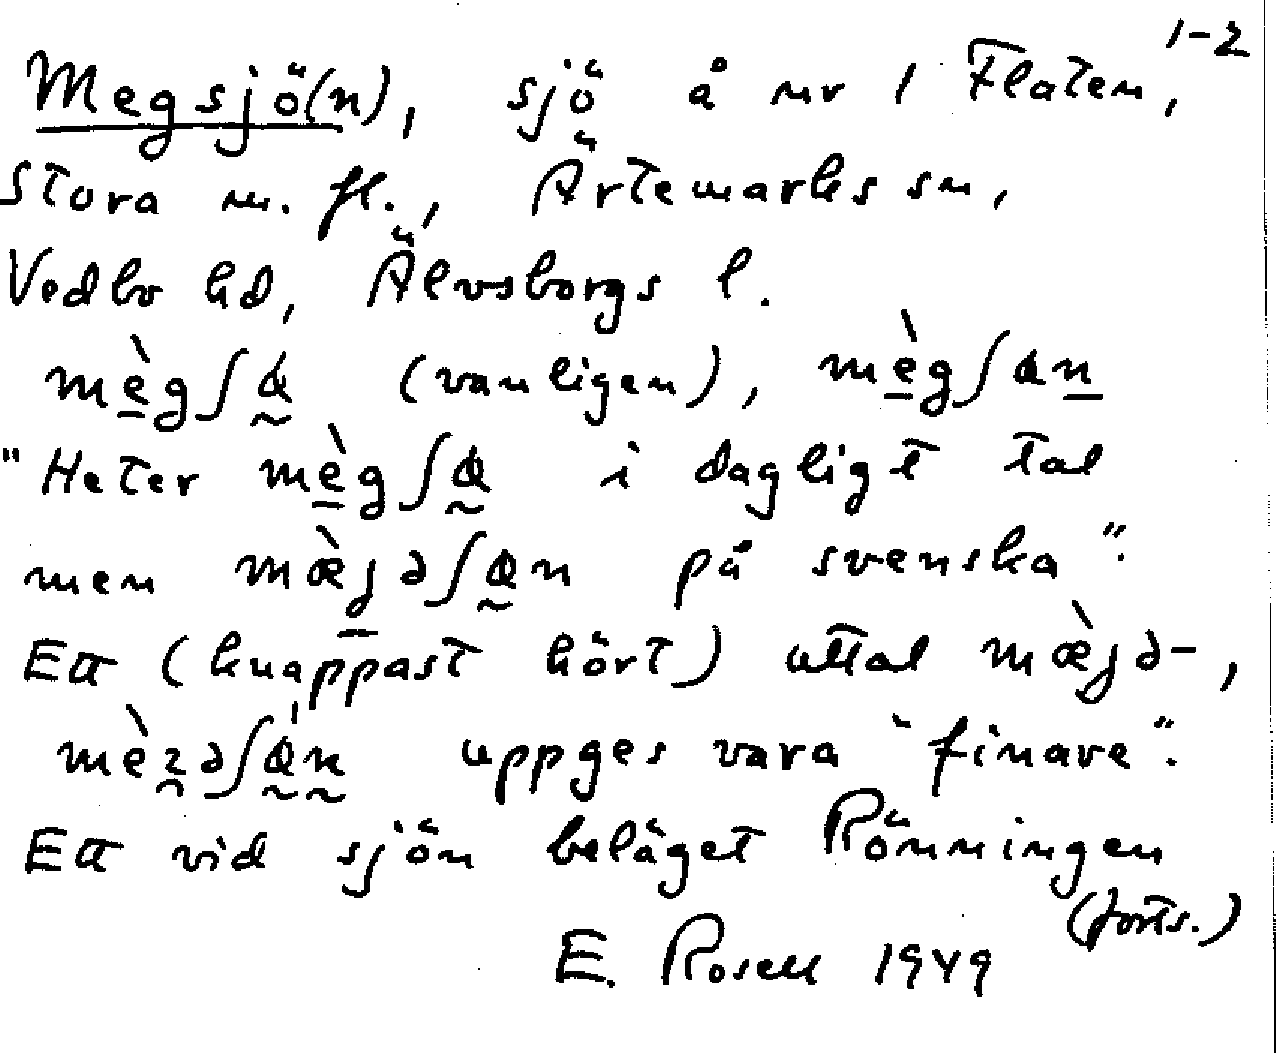 1-2
Megsjö(n), sjö å nr 1 Flaten,
Stora m. fl., Ärtemarks sn,
Vedbo hd, Älvsborgs l.
mè̲gʃꝋ̰ (vanligen), mè̲gʃꝋn̲
"Heter mè̲gʃꝋ̰ i dagligt tal
men mæ̀j̲əʃꝋ̰n på svenska".
Ett (knappast hört) uttal mæ̀jə-,
mèzəʃꝋ̰n̰ uppges vara "finare".
Ett vid sjön beläget Rönningen
(forts.)
E. Rosell 1949